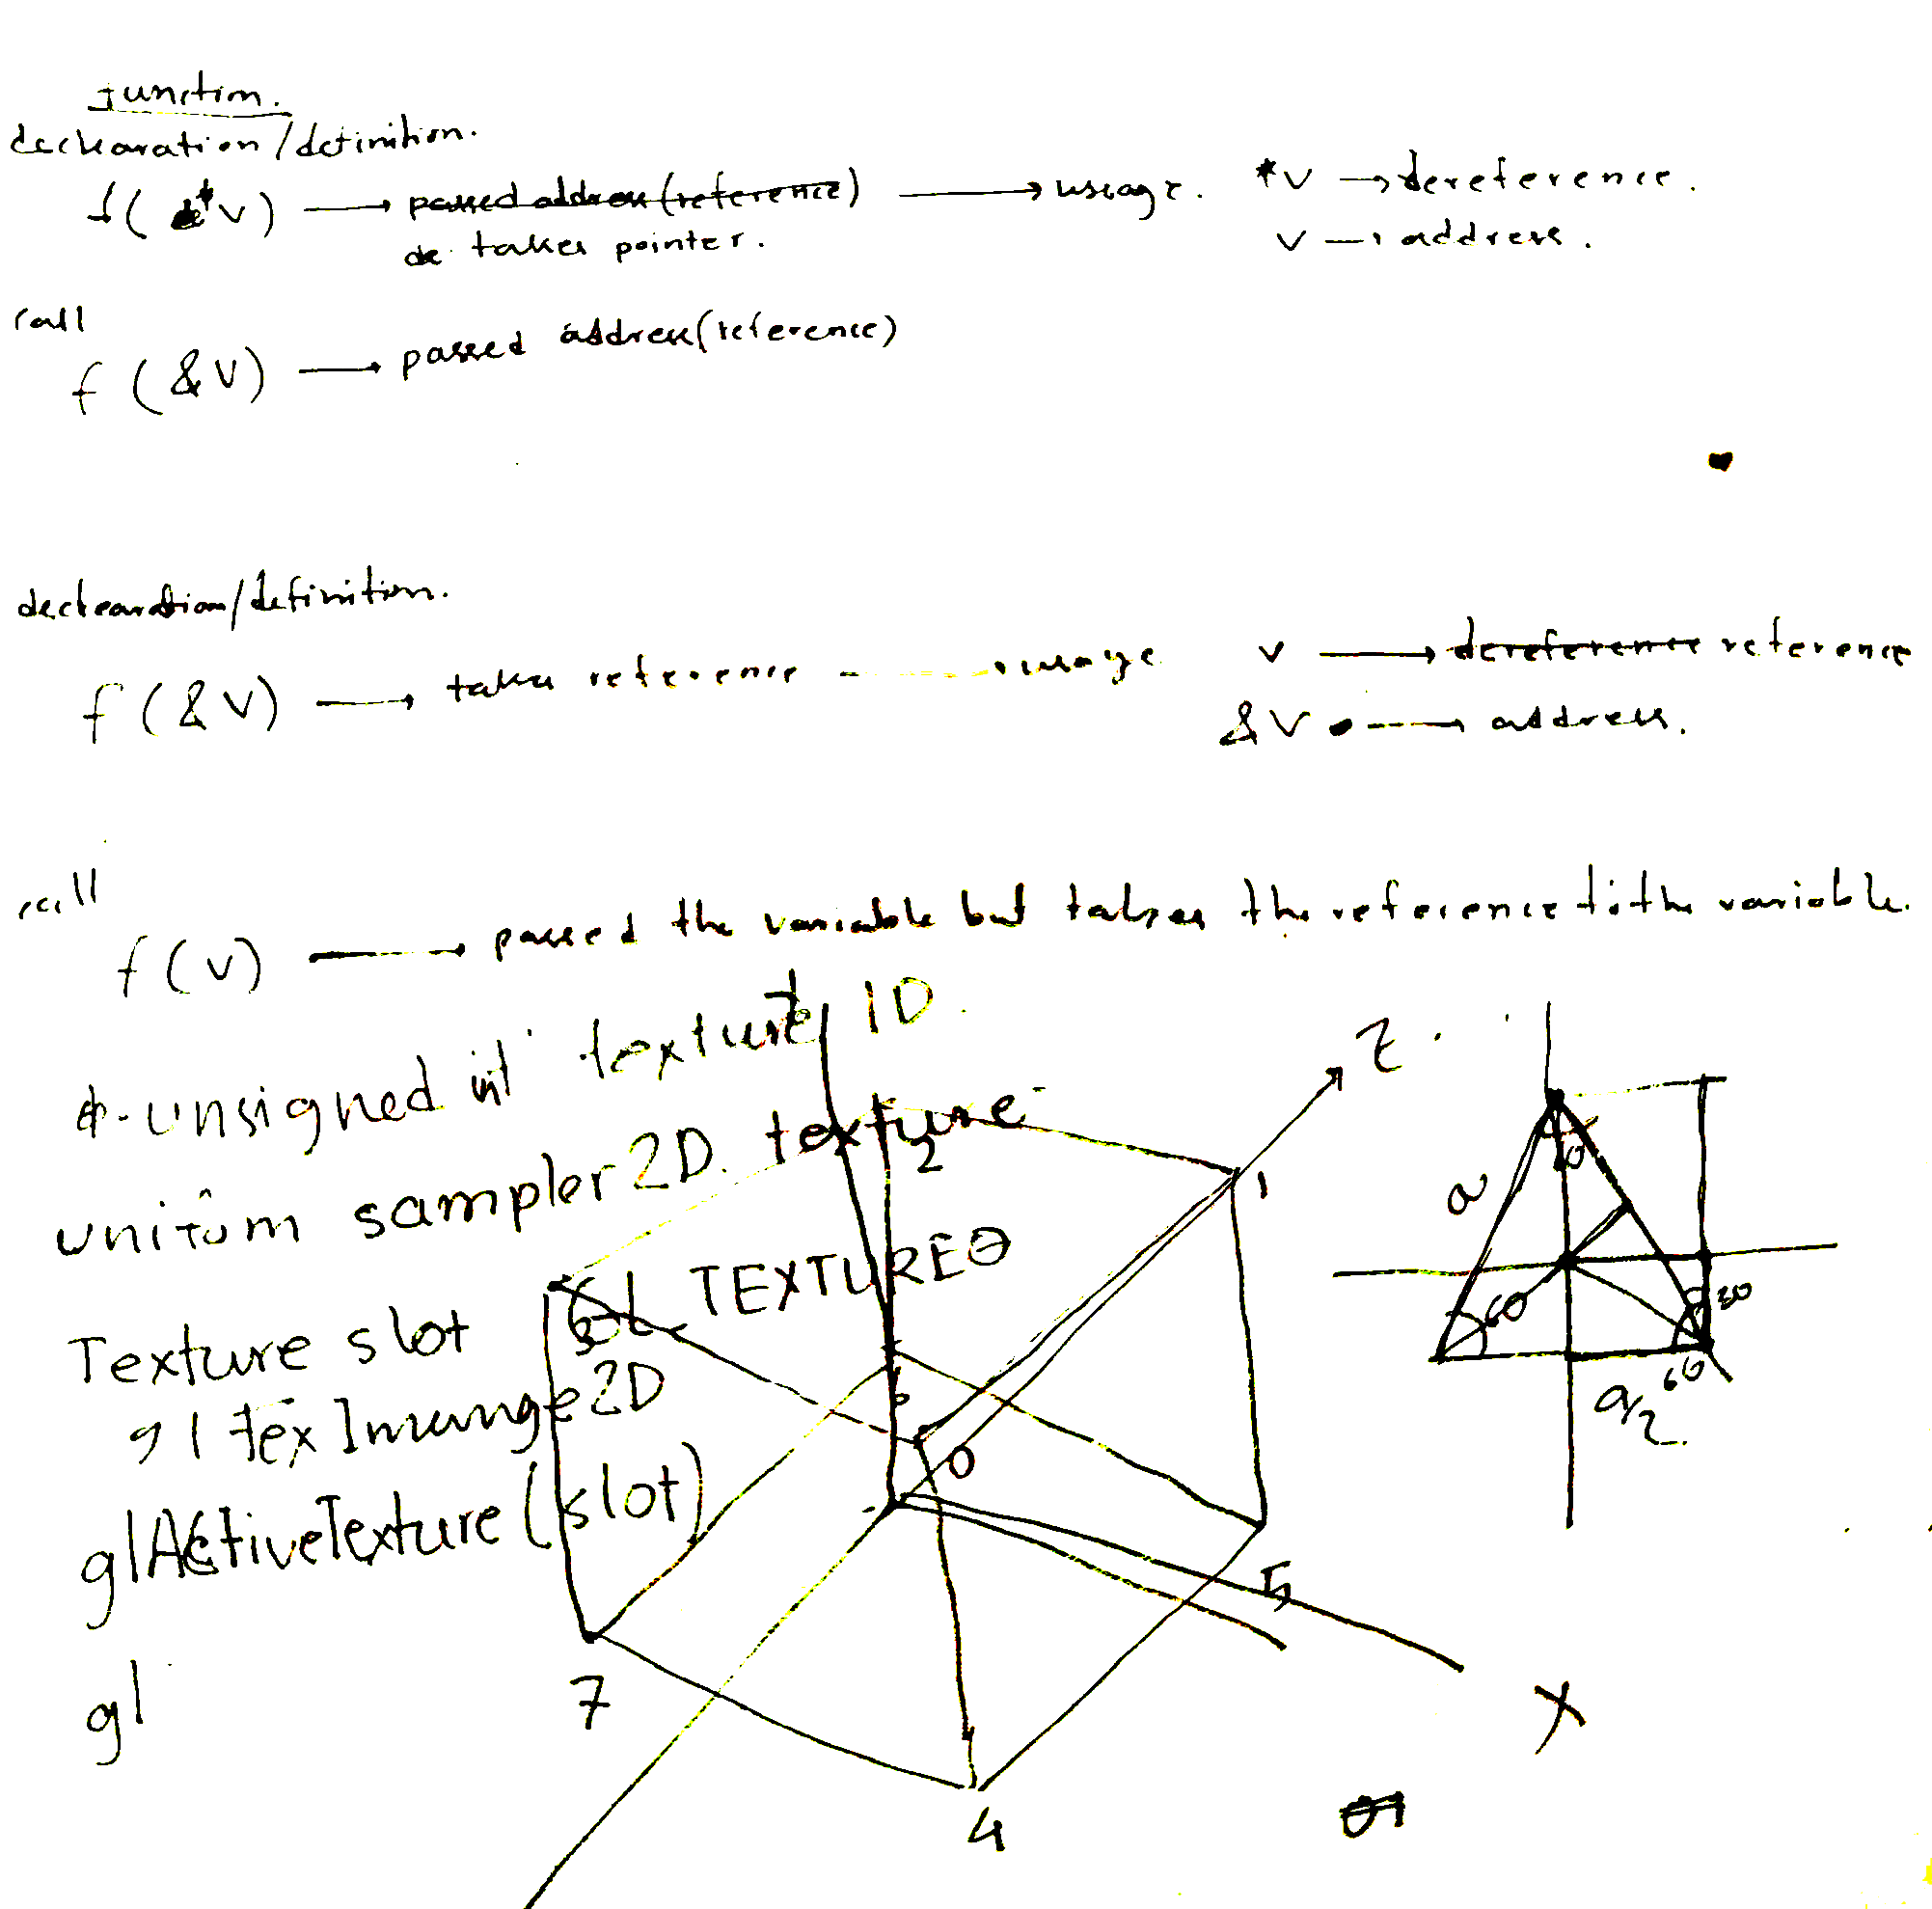 function.
decleoaration/definition.
f(*v) → passed address(reference) → useage. *v → dereference.
de takes pointer. v → address.
call
f(&v) → passed address(reference)
decleoaration/definition.
f(&v) → takes reference → usage v → dereference reference
&v → address.
call
f(v) → passed the variable but takes the reference to the variable.
unsigned int texture ID.
uniform sampler2D. texture
Texture slot GL_TEXTURE0
gl texImange2D
glActiveTexture(slot)
gl
z
2
1
3
6
0
5
7
4
x
a
60
30
60
a/2